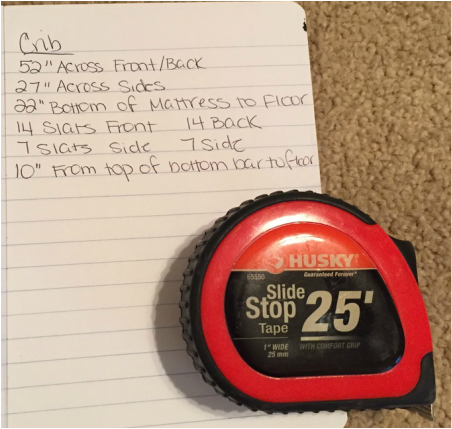 Crib
52" Across Front/Back
27" Across Sides
22" Bottom of Mattress to Floor
14 Slats Front 14 Back
7 Slats Side 7 Side
10" From top of bottom bar to floor
HUSKY
Guaranteed Forever
65550
Slide
Stop 25'
Tape
1" WIDE WITH COMFORT GRIP
25 mm